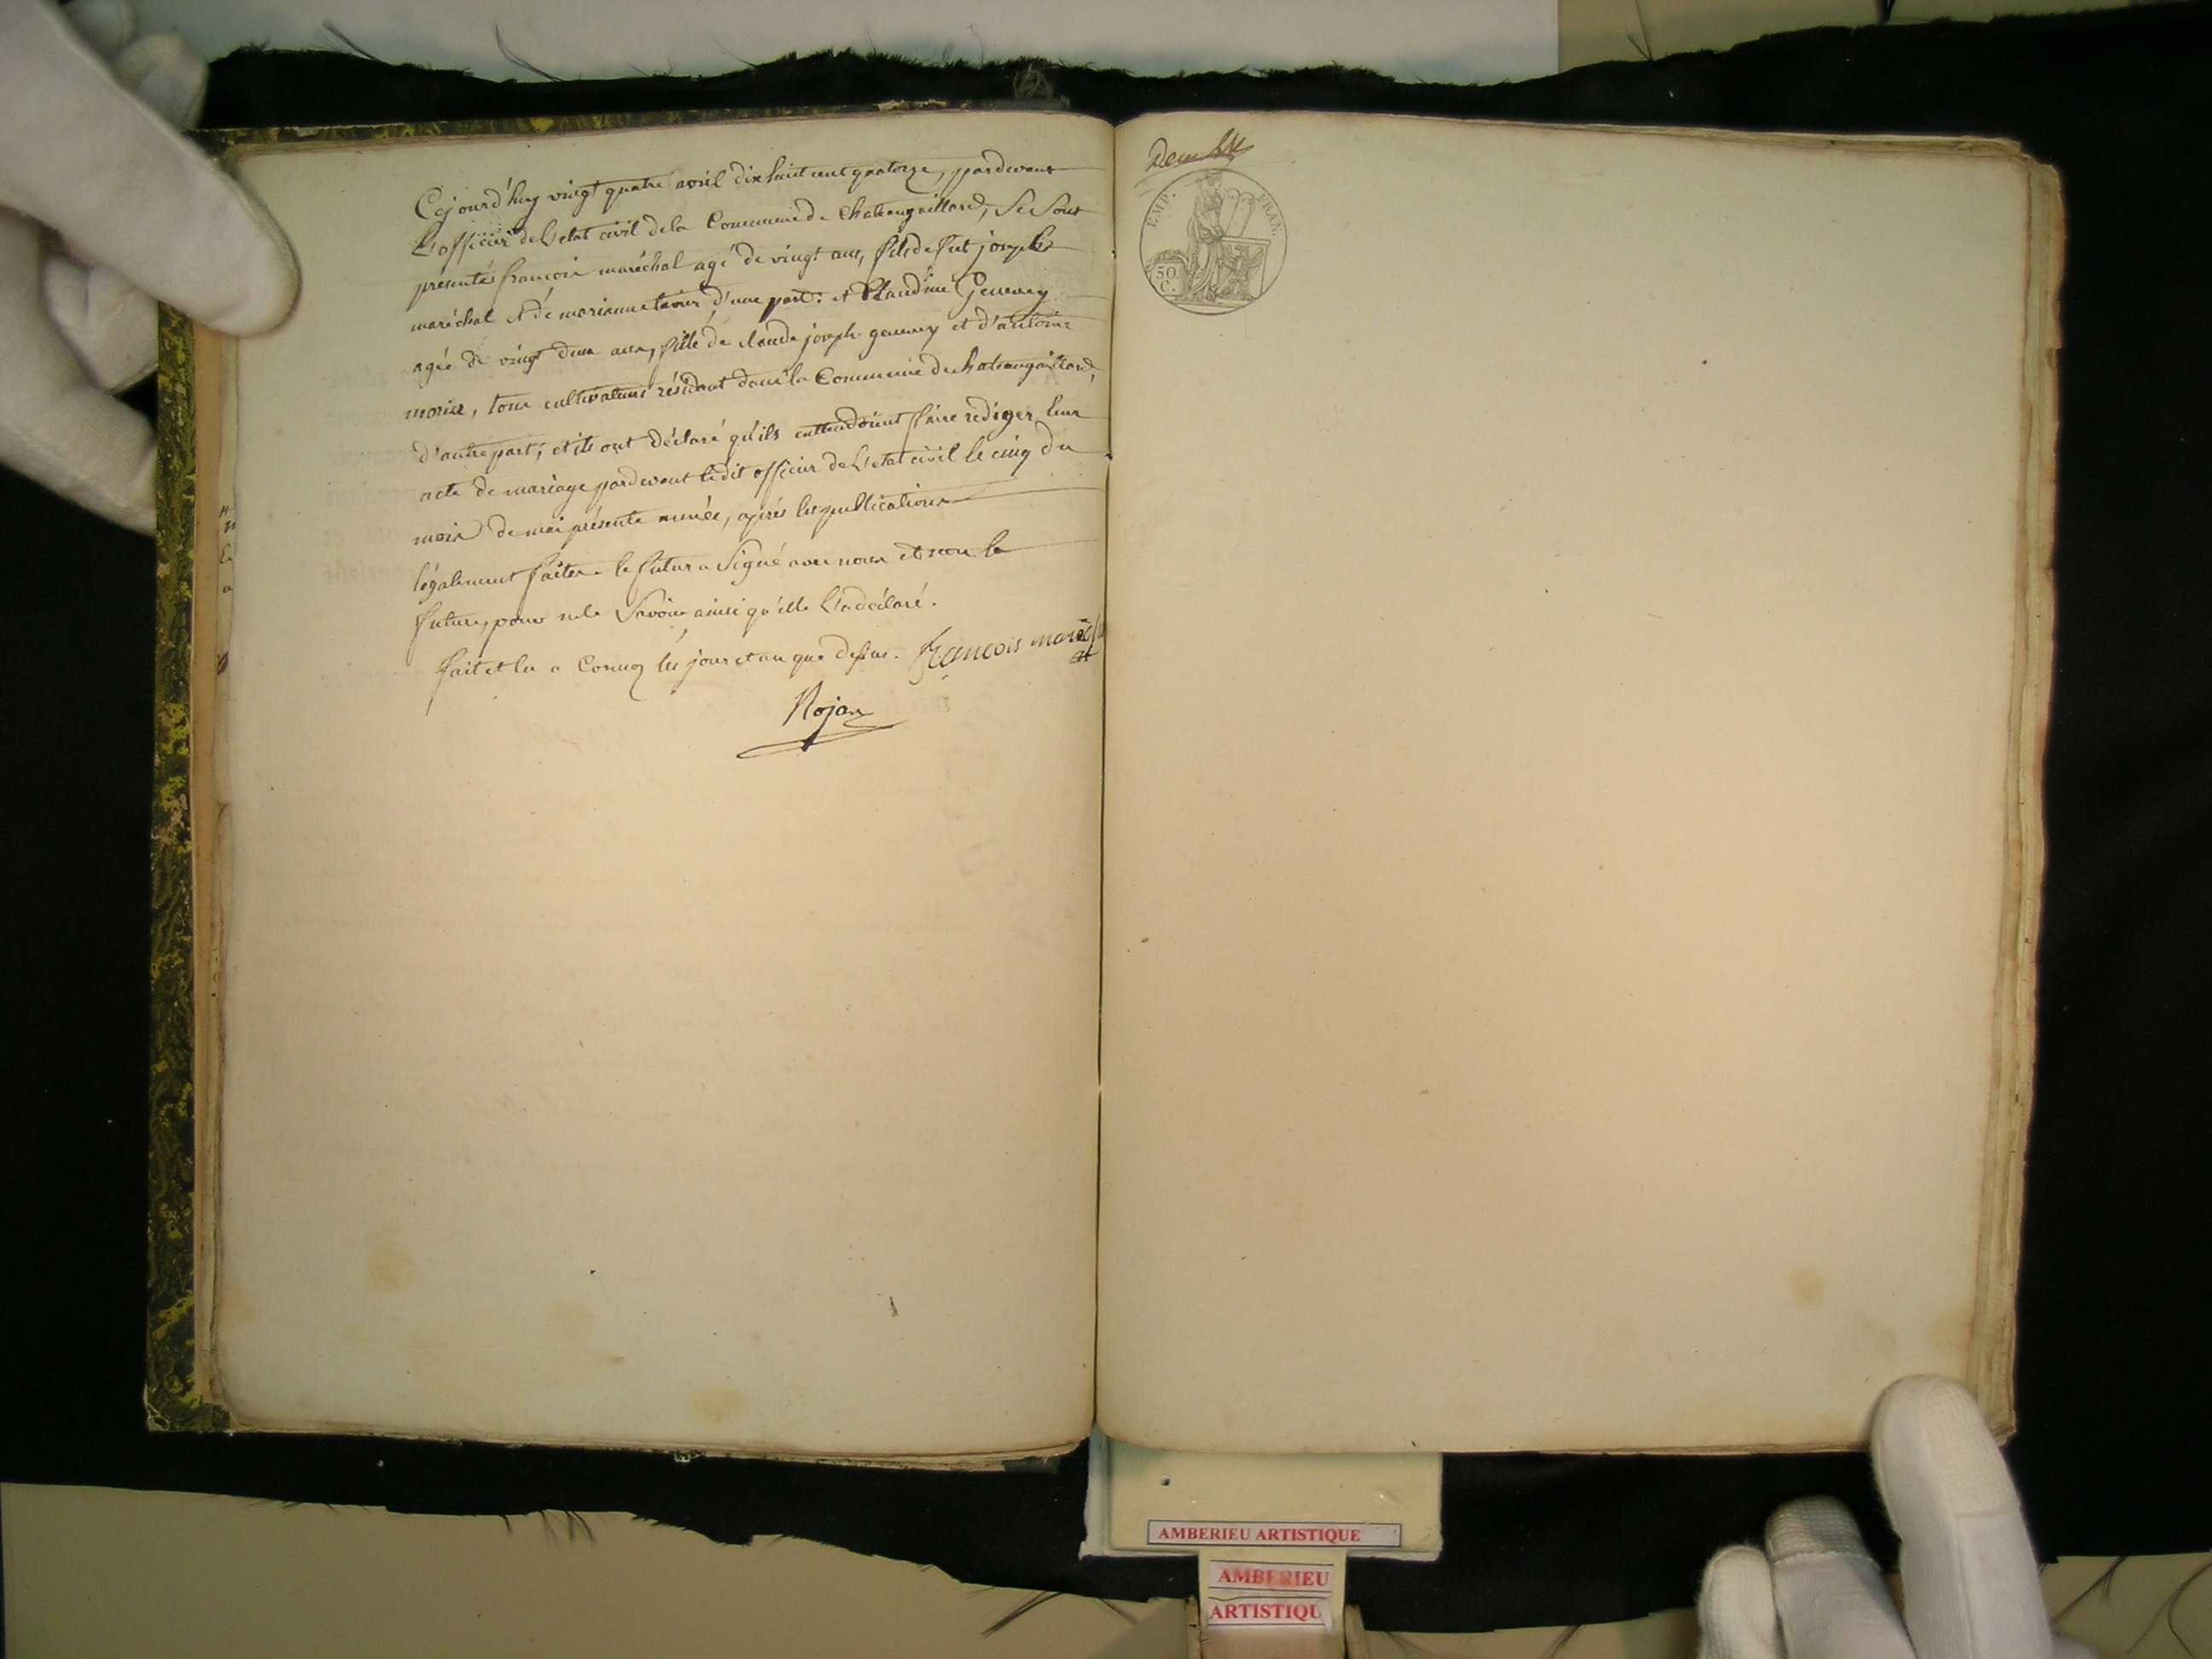 Cejourd'huy vingt quatre avril dix huit cent quatorze, pardevant
L'officier de L'etat civil de la Commune de Chateaugaillard, Se Sont
presentés francois maréchal agé de vingt ans, fils de fut joseph
maréchal et de marianne d'une part: et Claudine Genevey
agée de vingt deux ans, fille de claude joseph genevey et d'antoine
morier, tous cultivateurs résidant dans la Commune de chateaugaillard,
d'autre part; et ils ont déclaré qu'ils entendoient faire rediger leur
acte de mariage pardevant ledit officier de L'etat civil le cinq du
mois de mai présente année, après les publications
légalement faites. le futur a Signé avec nous et non la
future, pour ne le Savoir ainsi qu'elle L'a déclaré.
fait et lu a Cormoz les jour et an que dessus. francois
Nojan
EMP. FRAN.
50 C.
AMBERIEU ARTISTIQUE
AMBERIEU
ARTISTIQU